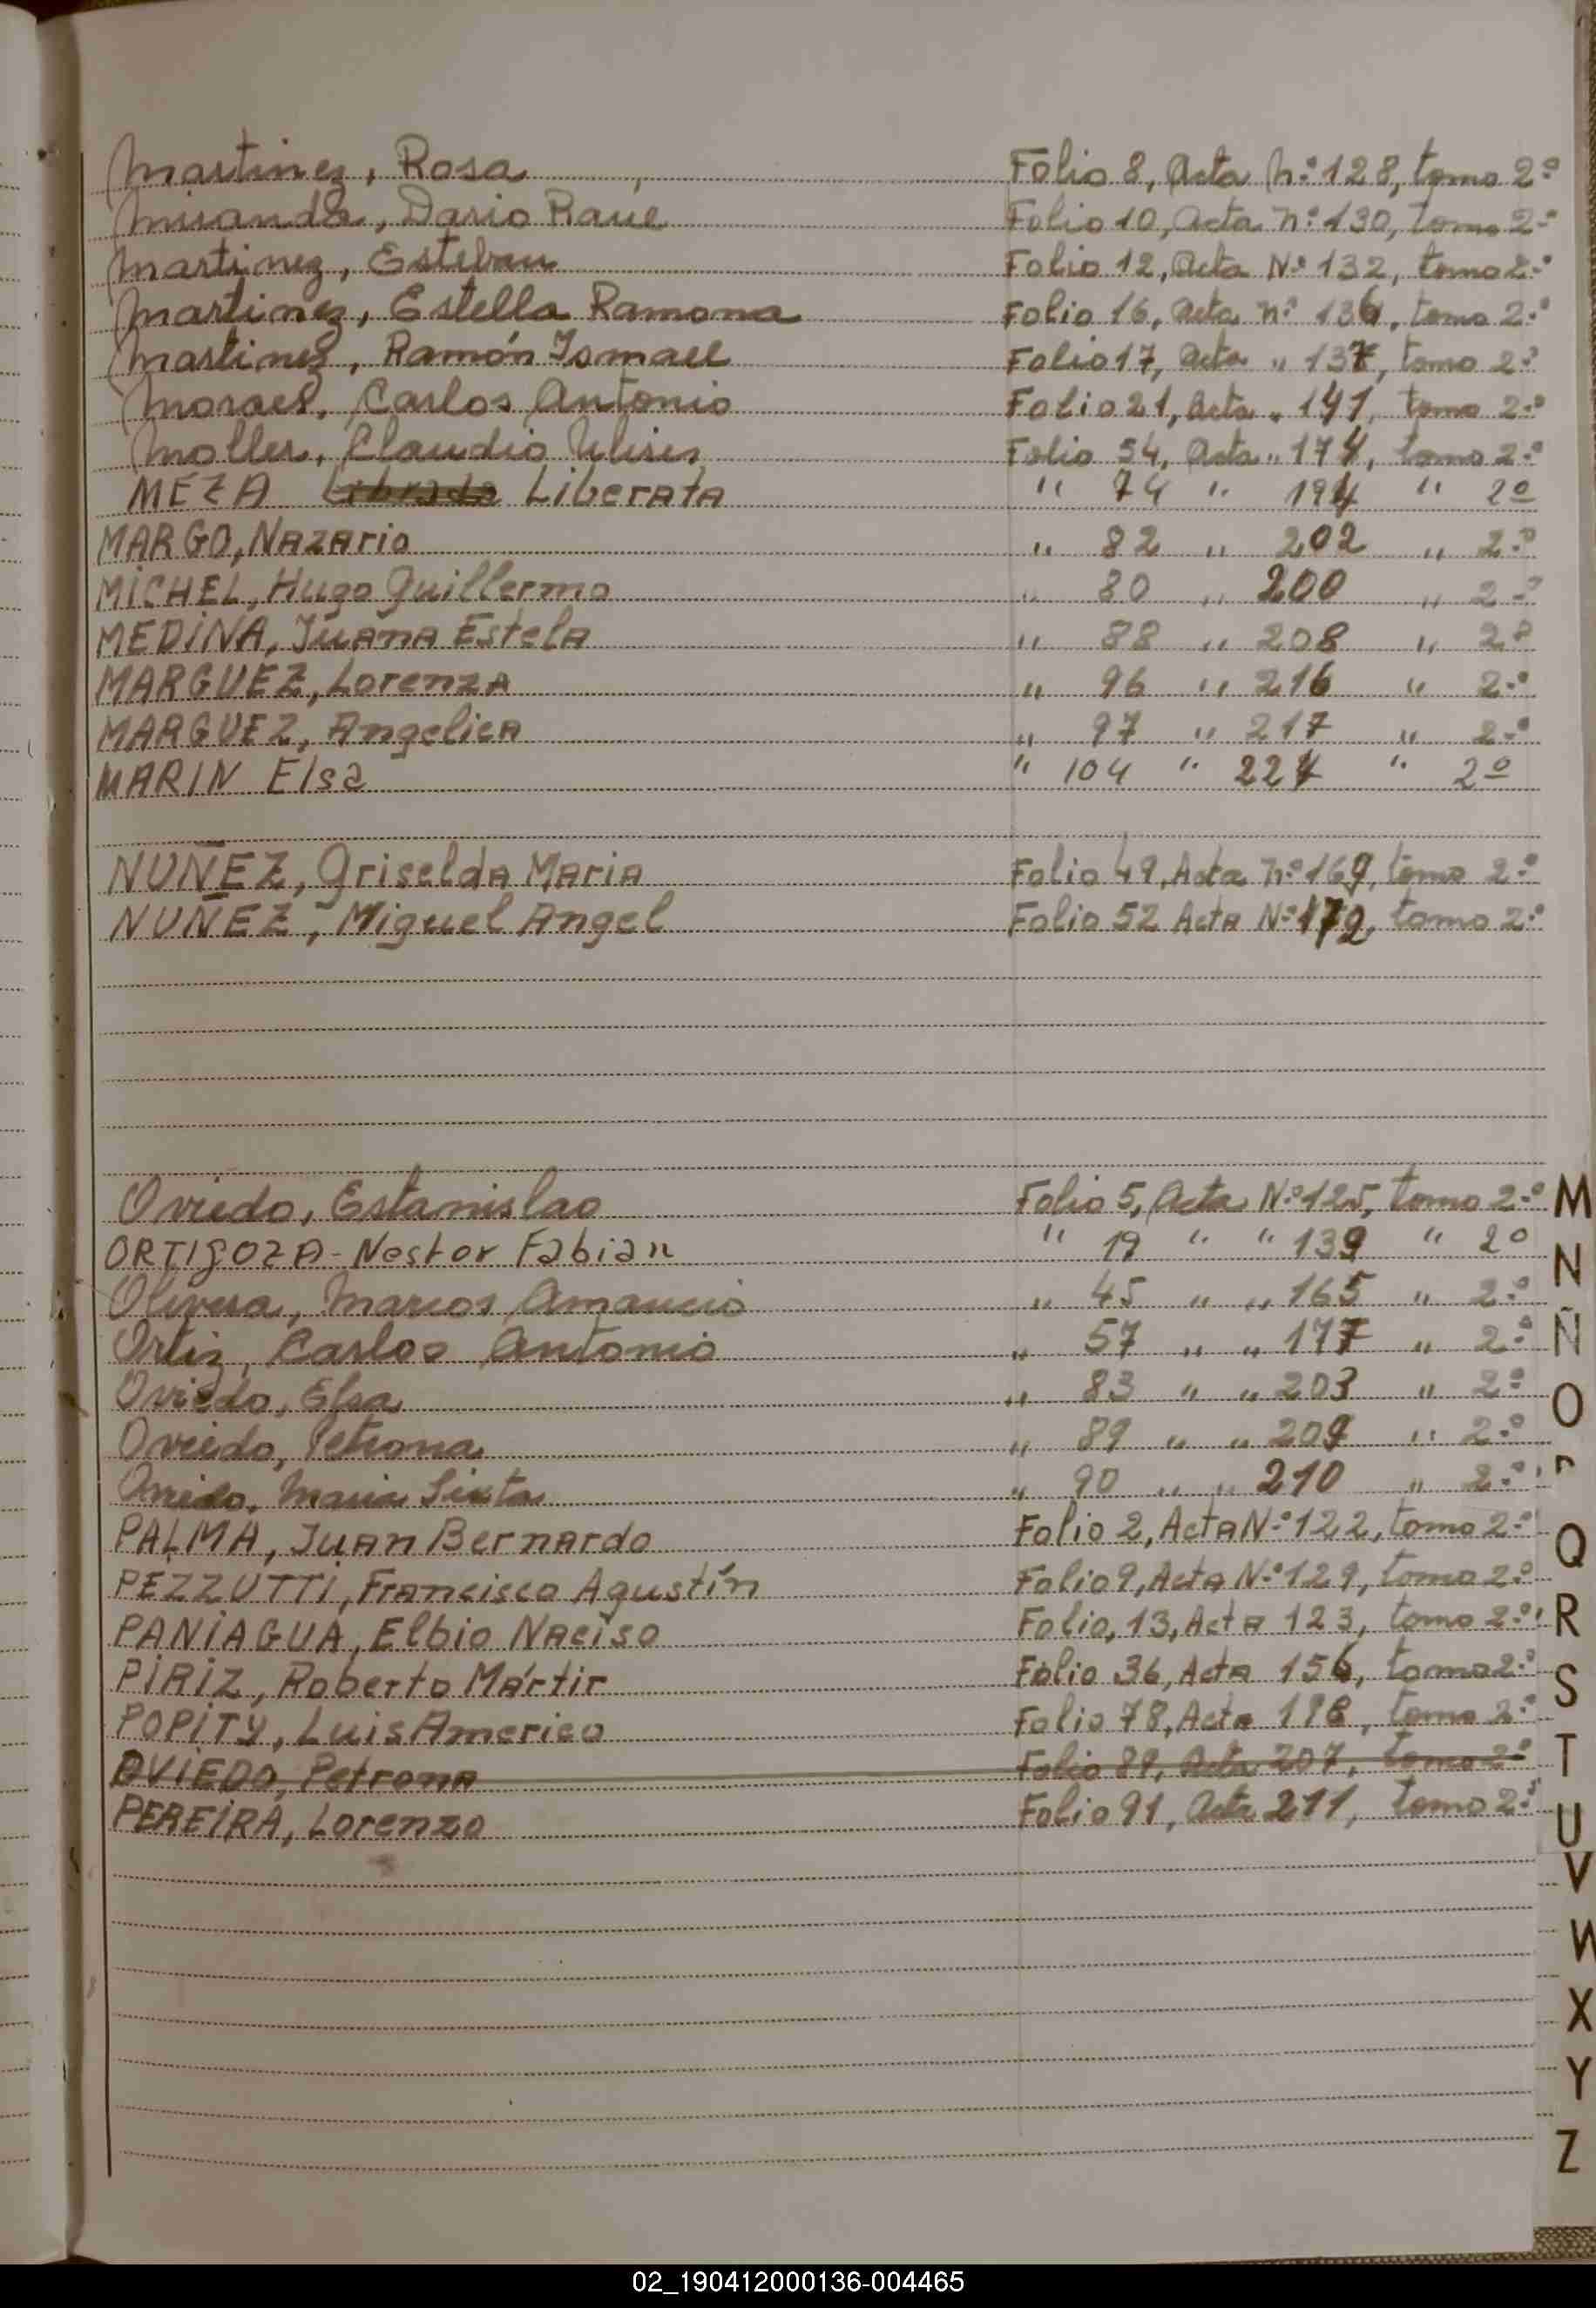 Martinez, Rosa Folio 8, Acta N.º 128, tomo 2.º
Miranda, Dario Raúl Folio 10, Acta n.º 130, tomo 2.º
Martinez, Esteban Folio 12, Acta N.º 132, tomo 2.º
Martinez, Estella Ramona Folio 16, Acta n.º 136, tomo 2.º
Martinez, Ramón Ismael Folio 17, Acta " 137, tomo 2.º
Moraes, Carlos Antonio Folio 21, Acta " 141, tomo 2.º
Moller, Claudio Ulises Folio 54, Acta " 174, tomo 2.º
MEZA Librada Liberata " 74 " 194 " 2º
MARGO, Nazario " 82 " 202 " 2.º
MICHEL, Hugo Guillermo " 80 " 200 " 2.º
MEDINA, Juana Estela " 88 " 208 " 2º
MARGUEZ, Lorenza " 96 " 216 " 2.º
MARGUEZ, Angelica " 97 " 217 " 2.º
MARIN Elsa " 104 " 224 " 2º
NUÑEZ, Griselda Maria Folio 49, Acta n.º 169, tomo 2.º
NUÑEZ, Miguel Angel Folio 52 Acta N.º 172, tomo 2.º
Oviedo, Estanislao Folio 5, Acta N.º 125, tomo 2.º
ORTIGOZA - Nestor Fabian " 19 " " 139 " 2º
Olivera, Marcos Amancio " 45 " " 165 " 2.º
Ortiz, Carlos Antonio " 57 " " 177 " 2.º
Oviedo, Elsa " 83 " " 203 " 2º
Oviedo, Petrona " 89 " " 209 " 2.º
Oviedo, Maria Sixta " 90 " " 210 " 2.º
PALMA, Juan Bernardo Folio 2, Acta N.º 122, tomo 2.º
PEZZUTTI, Francisco Agustín Folio 9, Acta N.º 129, tomo 2.º
PANIAGUA, Elbio Naciso Folio, 13, Acta 123, tomo 2.º
PIRIZ, Roberto Mártir Folio 36, Acta 156, tomo 2.º
POPITY, Luis Americo Folio 78, Acta 198, tomo 2.º
OVIEDO, Petrona Folio 89, Acta 207, tomo 2º
PEREIRA, Lorenzo Folio 91, Acta 211, tomo 2.º
M
N
Ñ
O
P
Q
R
S
T
U
V
W
X
Y
Z
02_190412000136-004465